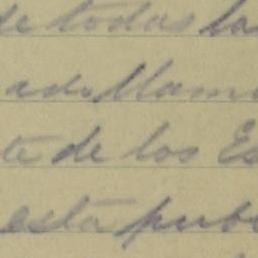 de todas la
ado llam
te de los Es
esta pub